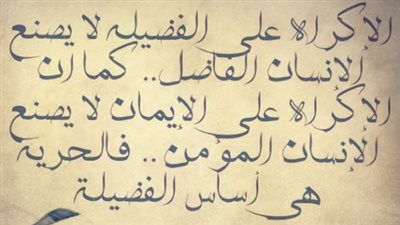 الإكراه على الفضيله لا يصنع
الإنسان الفاضل.. كما ان
الإكراه على الإيمان لا يصنع
الإنسان المؤمن.. فالحرية
هى أساس الفضيلة